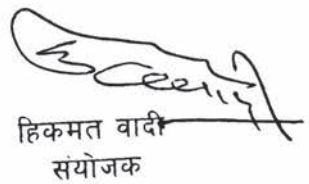 हिकमत वादी
संयोजक